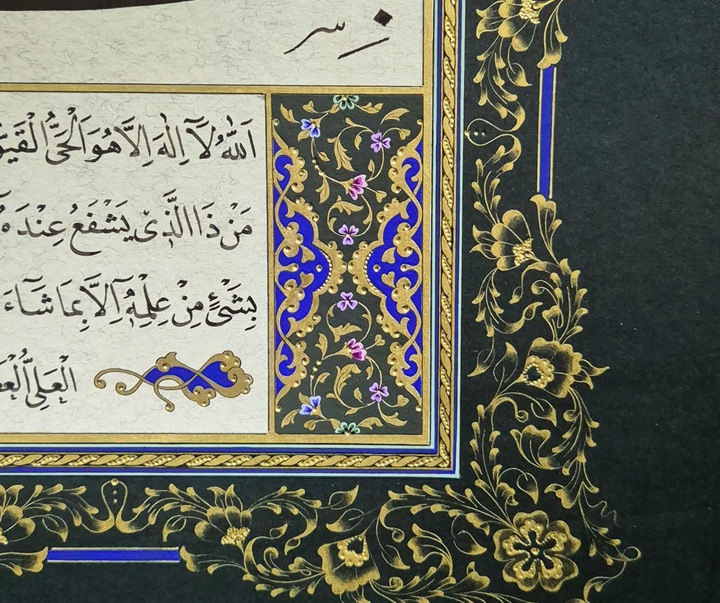 اَللّٰهُ لَآ اِلٰهَ اِلَّا هُوَ اَلْحَىُّ الْقَيُّ
مَنْ ذَا الَّذ۪ى يَشْفَعُ عِنْدَهُ
بِشَىْءٍ مِنْ عِلْمِه۪ٓ اِلَّا بِمَا شَآءَ
الْعَلِىُّ الْعَظ